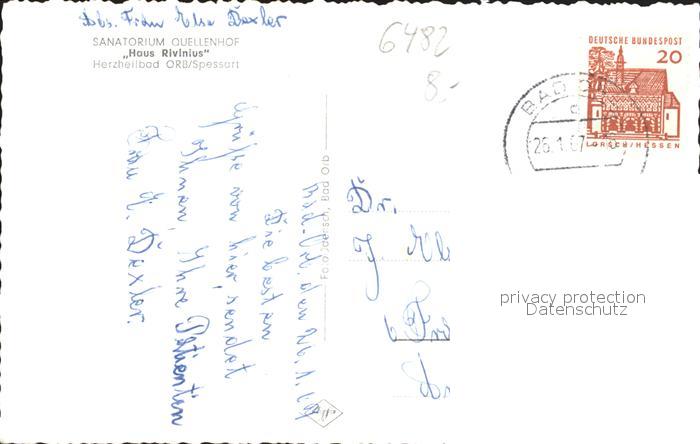 Abs. Frau Elsa Daxler
SANATORIUM QUELLENHOF
„Haus Rivinius"
Herzheilbad ORB/Spessart
6482
8,-
DEUTSCHE BUNDESPOST
20
LORSCH/HESSEN
BAD
26.1.67
Bad-Orb, den 26.1.67
Die besten
Grüße von hier sendet
Ihnen, Ihre Patientin
Frau E. Daxler.
Foto Jaensch, Bad Orb
Dr.
J
6
privacy protection
Datenschutz